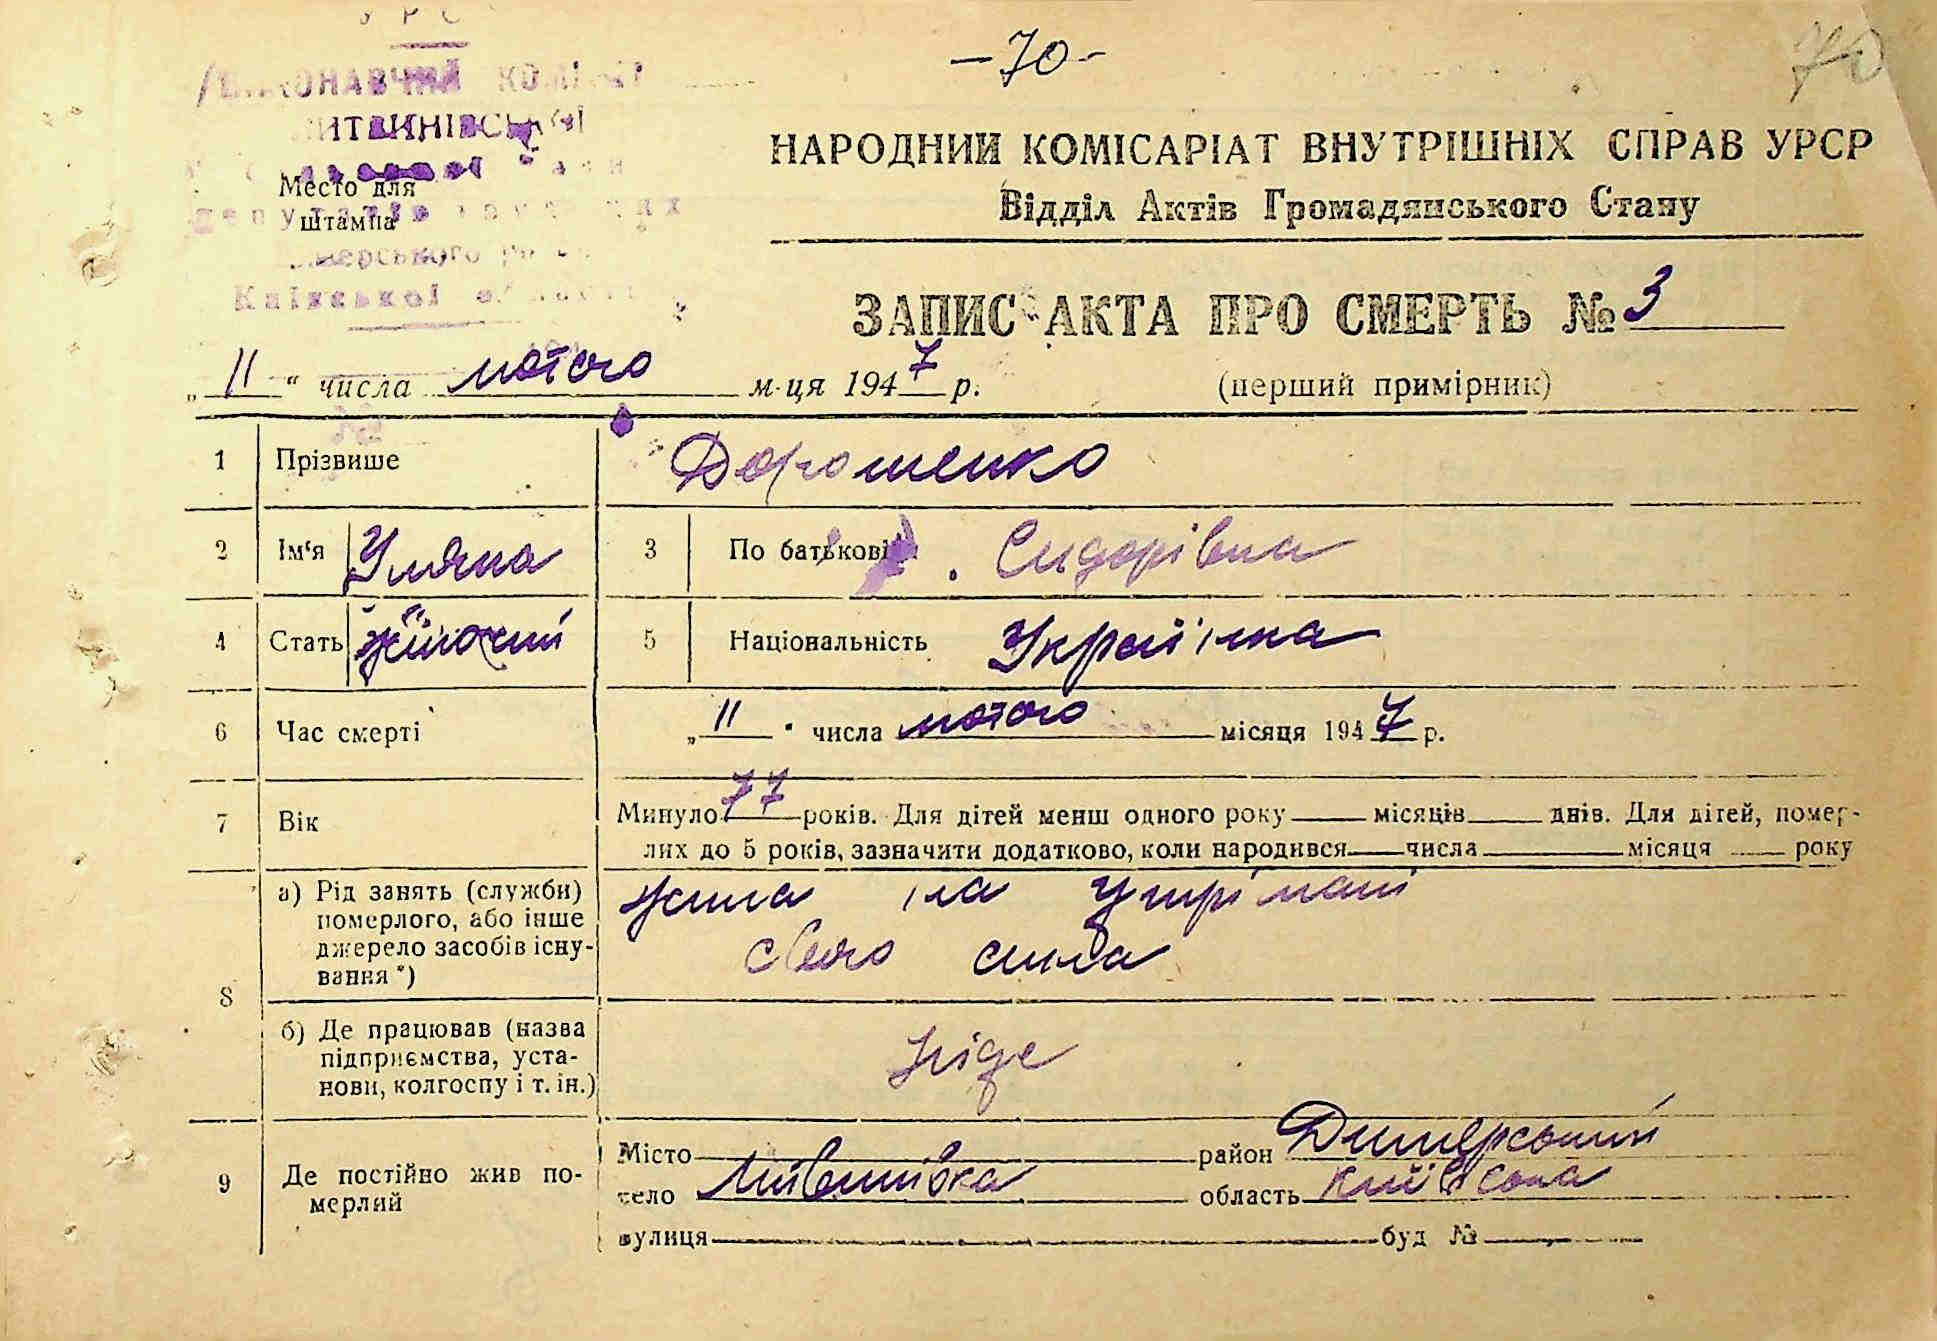 УРС
- 70 -
70
ВИКОНАВЧИЙ КОМІТЕТ
ЛИТВИНІВСЬКОЇ
Место для
штампа
депутатів трудящих
Димерського району
Київської області
НАРОДНИЙ КОМІСАРІАТ ВНУТРІШНІХ СПРАВ УРСР
Відділ Актів Громадянського Стану
ЗАПИС АКТА ПРО СМЕРТЬ № 3
„ 11 “ числа лютого м-ця 1947 р. (перший примірник)
1 Прізвише Дорошенко
2 Ім‘я Уляна 3 По батькові Сидорівна
4 Стать жіночий 5 Національність Українка
6 Час смерті „ 11 “ числа лютого місяця 1947 р.
7 Вік Минуло 77 років. Для дітей менш одного року місяців днів. Для дітей, помер-
лих до 5 років, зазначити додатково, коли народився числа місяця року
8 а) Рід занять (служби)
померлого, або інше
джерело засобів існу-
вання *)
жила на утрімані
свого сина
б) Де працював (назва
підприємства, уста-
нови, колгоспу і т. ін.)
Ніде
9 Де постійно жив по-
мерлий
Місто район Димерський
село Литвинівка область Київська
вулиця буд №